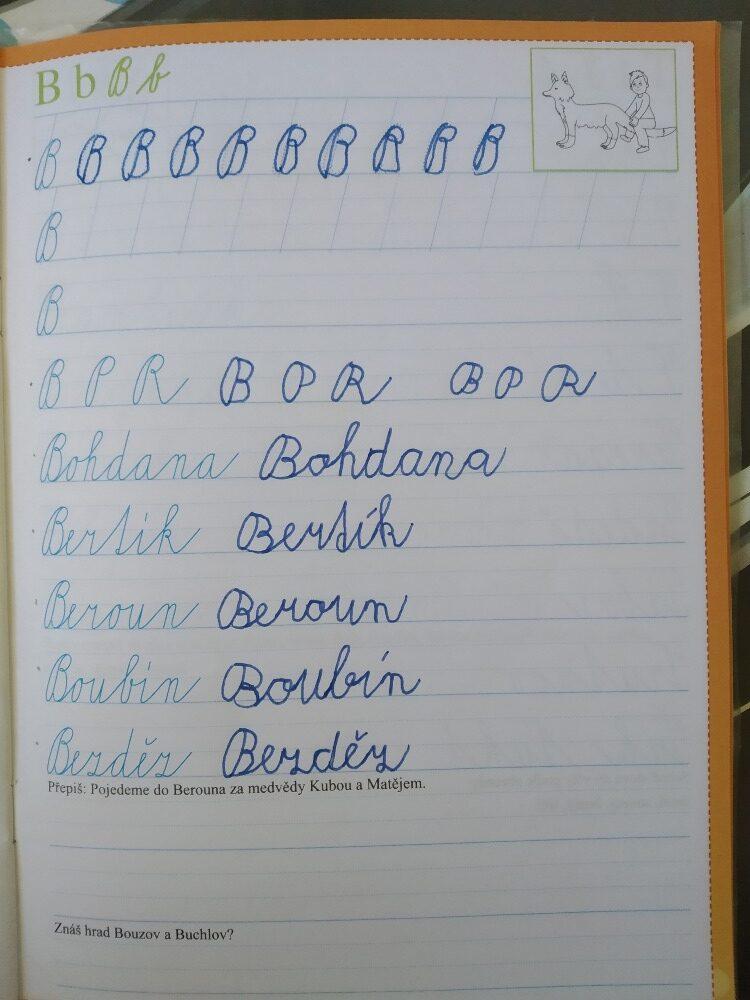 B b B b
B B B B B B B B B B
B
B
B P R B P R B P R
Bohdana Bohdana
Bertík Bertík
Beroun Beroun
Boubín Boubín
Bezděz Bezděz
Přepiš: Pojedeme do Berouna za medvědy Kubou a Matějem.
Znáš hrad Bouzov a Buchlov?